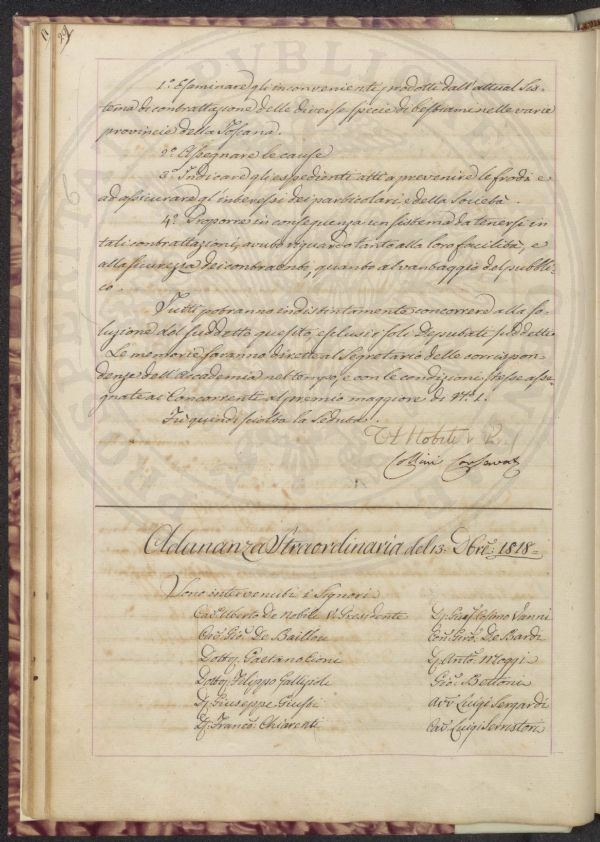 29
1.º Esaminare gli inconvenienti prodotti dall'attual Sis-
tema di contrattazione delle diverse specie di bestiami nelle varie
provincie della Toscana.
2.º Assegnare le cause
3.º Indicare gli espedienti atti a prevenire le frodi e
ad assicurare gl'interessi dei particolari, e della Società.
4.º Proporre in conseguenza un sistema da tenersi in
tali contrattazioni, avuto riguardo tanto alla loro facilità, e
alla sicurezza dei contraenti, quanto al vantaggio del pubbli-
co.
Tutti potranno indistintamente concorrere alla so-
luzione del suddetto quesito, esclusi i soli Deputati suddetti
Le memorie saranno dirette al Segretario delle corrispon-
denze dell'Accademia nel tempo, e con le condizioni stesse asse-
gnate ai Concorrenti al premio maggiore di N.º 1.
Fu quindi sciolta la Seduta.
Nobili V. P.
Collini
Adunanza Straordinaria del 13. Dbre. 1818.
Sono intervenuti i Signori
Cav. Uberto de Nobili V. Presidente
Cav. Gio. De Baillou
Dottor Gaetano Cioni
Dottor Filippo Gallizioli
D. Giuseppe Giusti
D. Franco. Chiarenti
Cosimo Vanni
De Bardi
Anto. Mozzi
Gio. Bettoni
Avv. Luigi Sergardi
Cav. Luigi Serristori
PUBLIC
PROSPERITATI